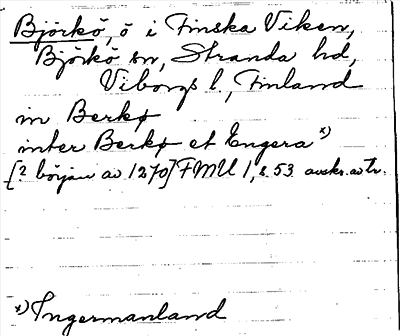 Björkö, ö i Finska Viken,
Björkö sn, Stranda hd,
Viborgs l., Finland
in Berkø
inter Berkø et Engera x)
[? början av 1270] FMU 1, s. 53 avskr. av tr.
x) Ingermanland